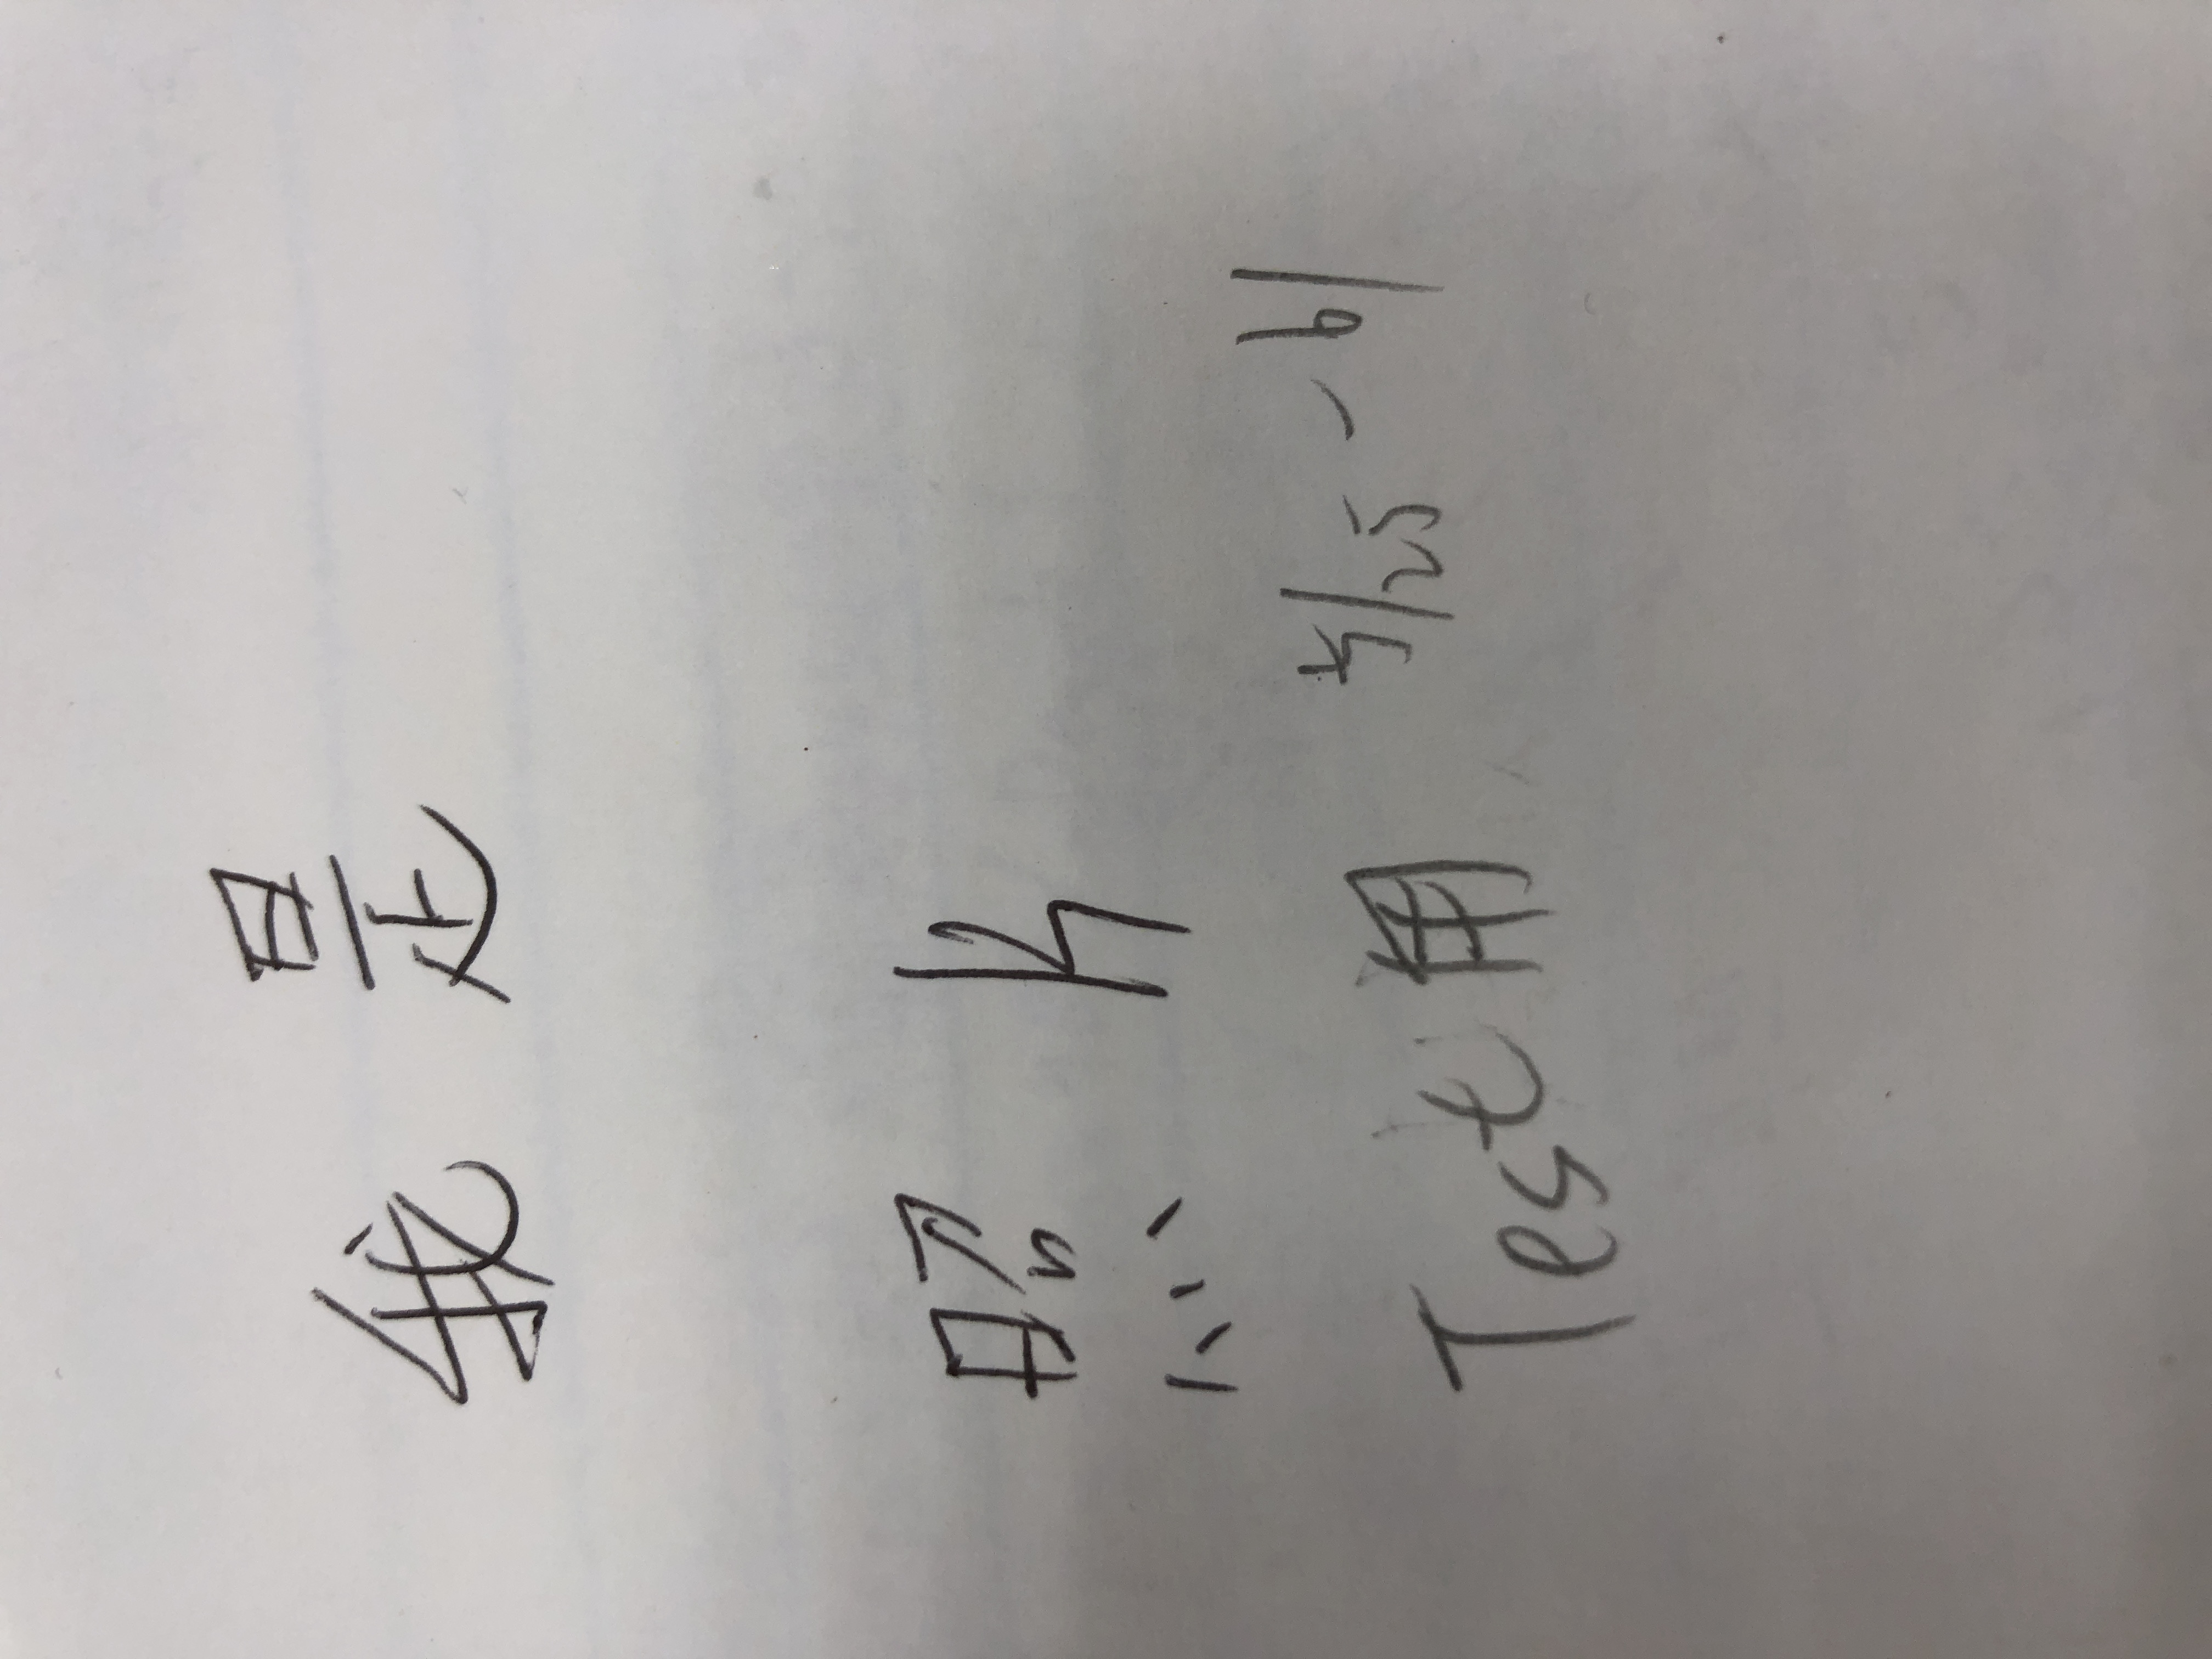 我是
照片
Test用 5/25-61